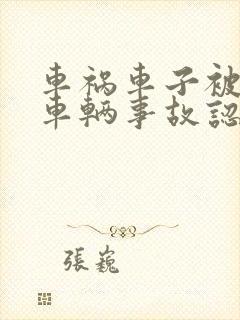 車祸車子被
車輌事故認
張巍